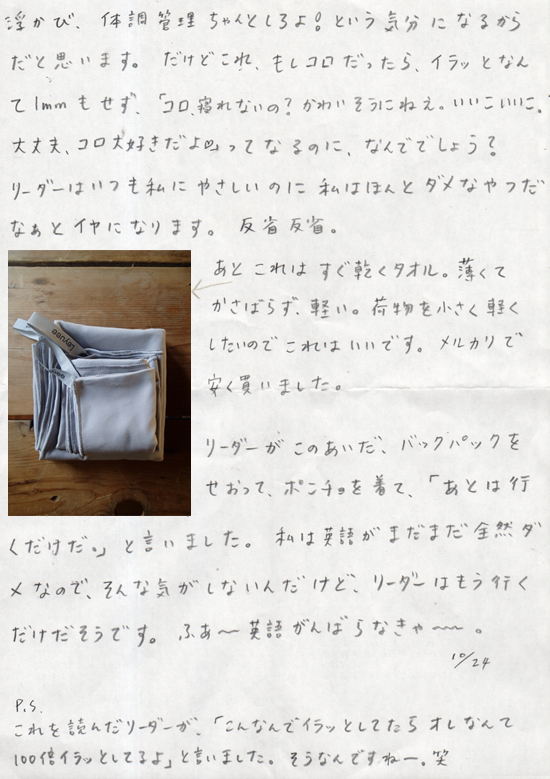 浮かび、体調管理ちゃんとしろよ!という気分になるから
だと思います。だけどこれ、もしコロだったら、イラッとなん
て1mmもせず、「コロ、寝れないの?かわいそうにねえ。いいこいいこ。
大丈夫、コロ大好きだよ♡」ってなるのに、なんででしょう?
リーダーはいつも私にやさしいのに私はほんとダメなやつだ
なぁとイヤになります。反省反省。
あとこれはすぐ乾くタオル。薄くて
かさばらず、軽い。荷物を小さく軽く
したいのでこれはいいです。メルカリで
安く買いました。
リーダーがこのあいだ、バックパックを
せおって、ポンチョを着て、「あとは行
くだけだ。」と言いました。私は英語がまだまだ全然ダ
メなので、そんな気がしないんだけど、リーダーはもう行く
だけだそうです。ふぁ〜英語がんばらなきゃ〜〜。
10/24
P.S.
これを読んだリーダーが、「こんなんでイラッとしてたらオレなんて
100倍イラッとしてるよ」と言いました。そうなんですねー。笑